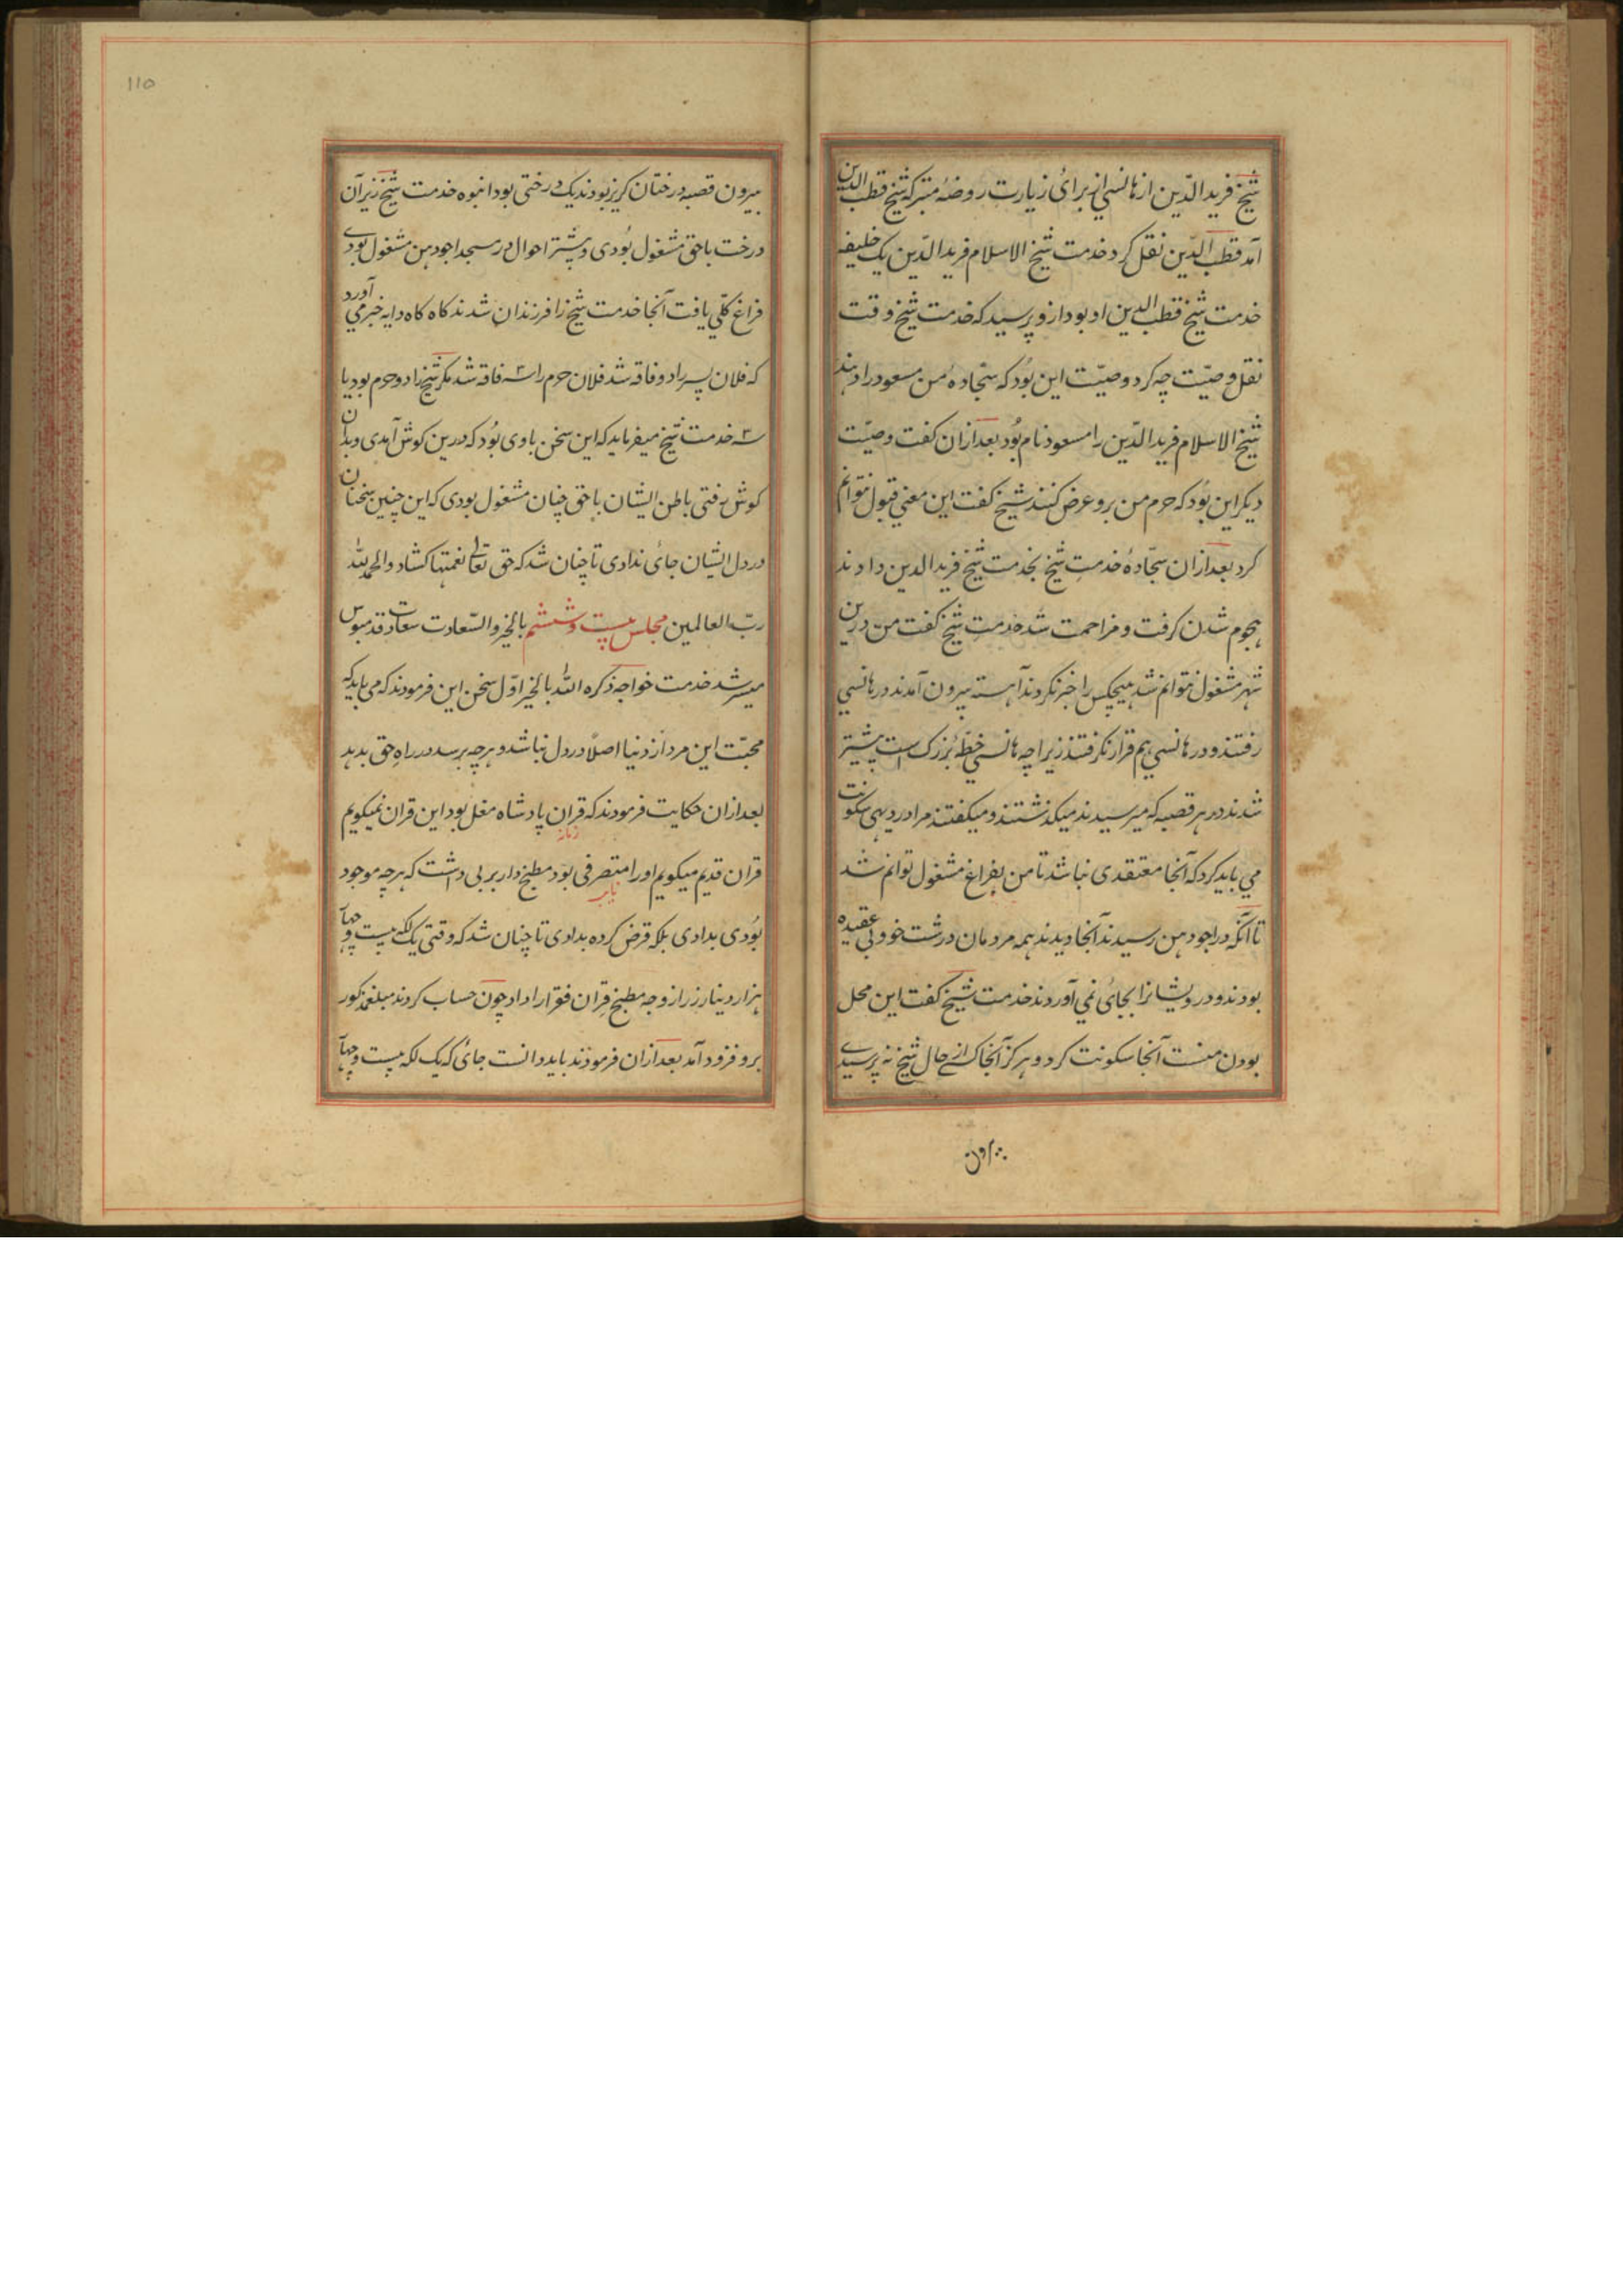 شیخ فرید الدّین از هانسی از برائ زیارت روضهٔ متبرکه شیخ قطب الدین
آمد قطب الدّین نقل کرد خدمت شیخ الاسلام فرید الدّین یک خلیفه
خدمت شیخ قطب الدین او بود ازو پرسید که خدمت شیخ وقت
نقل وصیّت چه کرد وصیّت این بُود که سجّادهٔ من مسعود را دهند
شیخ الاسلام فرید الدّین را مسعود نام بُود بعد ازان کفت وصیّت
دیکر این بُود که حرم من برو عرض کنند شیخ کفت این معنی قبول نتوانم
کرد بعد ازان سجّادهٔ خدمتِ شیخ بخدمت شیخ فرید الدین دادند
هجوم شدن کرفت و مزاحمت شد خدمتِ شیخ کفت من درین
شهر مشغول نتوانم شد هیچکس را خبر نکردند آهسته بیرون آمدند در هانسی
رفتند و در هانسی هم قرار نکرفتند زیراچه هانسی خطّهٔ بُزرک است پیشتر
شدند در هر قصبه که میرسیدند میکذشتند و میکفتند مرا در دیهی سکونت
می باید کرد که آنجا معتقدی نباشد تا من بفراغ مشغول توانم شد
تا آنکه در اجودهن رسیدند آنجا دیدند همه مردمان درشت خو و بی عقیده
بودند و درویشانرا بجائ نمی آوردند خدمت شیخ کفت این محل
بودن منست آنجا سکونت کرد و هرکز آنجا کسے از حال شیخ نه پرسیدے
بیرون
110
بیرون قصبه درختان کریز بودند یک درختی بود انبوه خدمت شیخ زیر آن
درخت باحق مشغول بُودی و بیشتر احوال در مسجد اجودهن مشغول بودے
فراغ کلّی یافت آنجا خدمت شیخ را فرزندان شدند کاه کاه دایه خبر می آورد
که فلان پسر را دو فاقه شد فلان حرم را سه فاقه شد مکر شیخ را دو حرم بود یا
سه خدمت شیخ میفرماید که این سخن بادی بُود که درین کوش آمدی و بدان
کوش رفتی باطن ایشان باحق چنان مشغول بودی که این چنین سخنان
در دل ایشان جائ ندادی تا چنان شد که حق تعالی نعمتها کشاد و الحمد لله
ربّ العالمین مجلس بیست و ششم بالخیر و السّعادت سعادت قدمبوس
میسر شد خدمت خواجه ذکره الله بالخیر اوّل سخن این فرمودند که می باید که
محبّت این مردار دنیا اصلًا در دل نباشد و هرچه برسد در راهِ حق بدهد
بعد ازان حکایت فرمودند که قران پادشاه مغل بود این قران نمیکویم
قران قدیم میکویم او را متصرفی بود مطبخ دار بربی داشت که هرچه موجود
بُودی بدادی بلکه قرض کرده بدادی تا چنان شد که وقتی یک لک بیست و چهار
هزار دینار زر از وجه مطبخ قران فقرا را داد چون حساب کردند مبلغ مذکور
برو فرود آمد بعد ازان فرمودند باید دانست جائ که یک لکه بیست و چهار